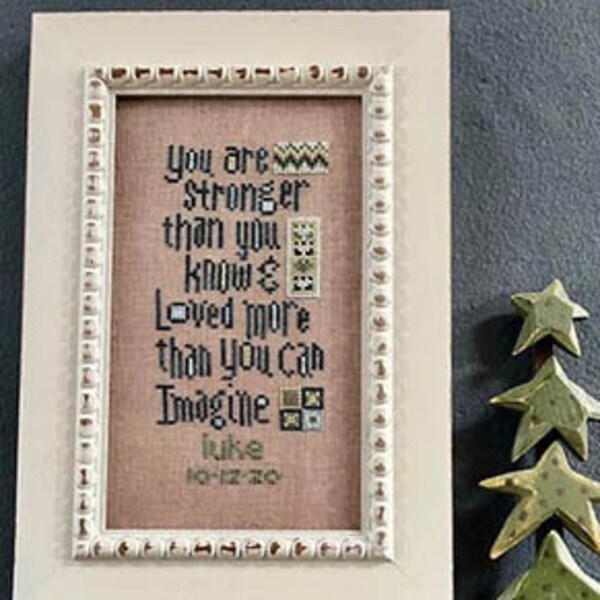 you are
stronger
than you
know &
Loved more
than you can
Imagine
luke
10-12-20